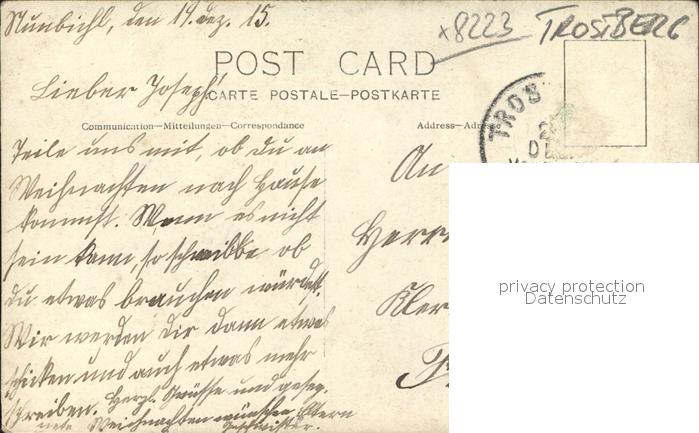 Nunbichl, den 19. Dez. 15.
x8223 TROSTBERG
POST CARD
Lieber Joseph!
CARTE POSTALE—POSTKARTE
Communication—Mitteilungen—Correspondance
Address—Adresse
TROS
2
DE
Teile uns mit, ob du an
Weihnachten nach Hause
kommst. Wenn es nicht
sein kann, so schreibbe ob
du etwas brauchen würdest.
Wir werden dir dann etwas
schicken und auch etwas mehr
schreiben. Herzl. Grüsse und geseg.
nete Weichnachten wünschen Eltern
Geschwister.
An
Herrn
Kler
privacy protection
Datenschutz